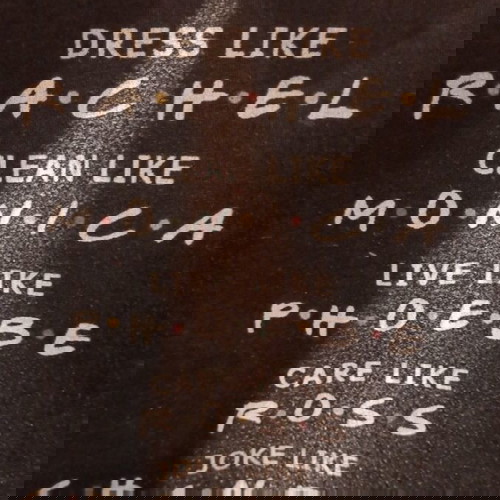 DRESS LIKE
R·A·C·H·E·L
CLEAN LIKE
M·O·N·I·C·A
LIVE LIKE
P·H·O·E·B·E
CARE LIKE
R·O·S·S
JOKE LIKE